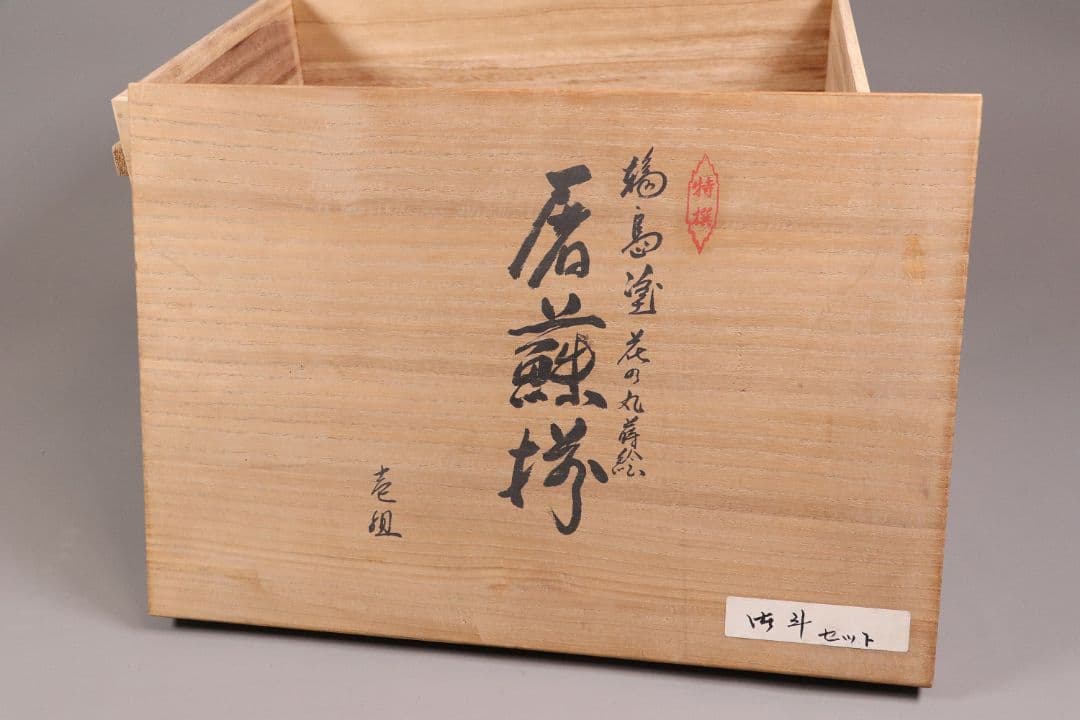 特撰
輪島塗 花の丸蒔絵
屠蘇揃
壱組
セット